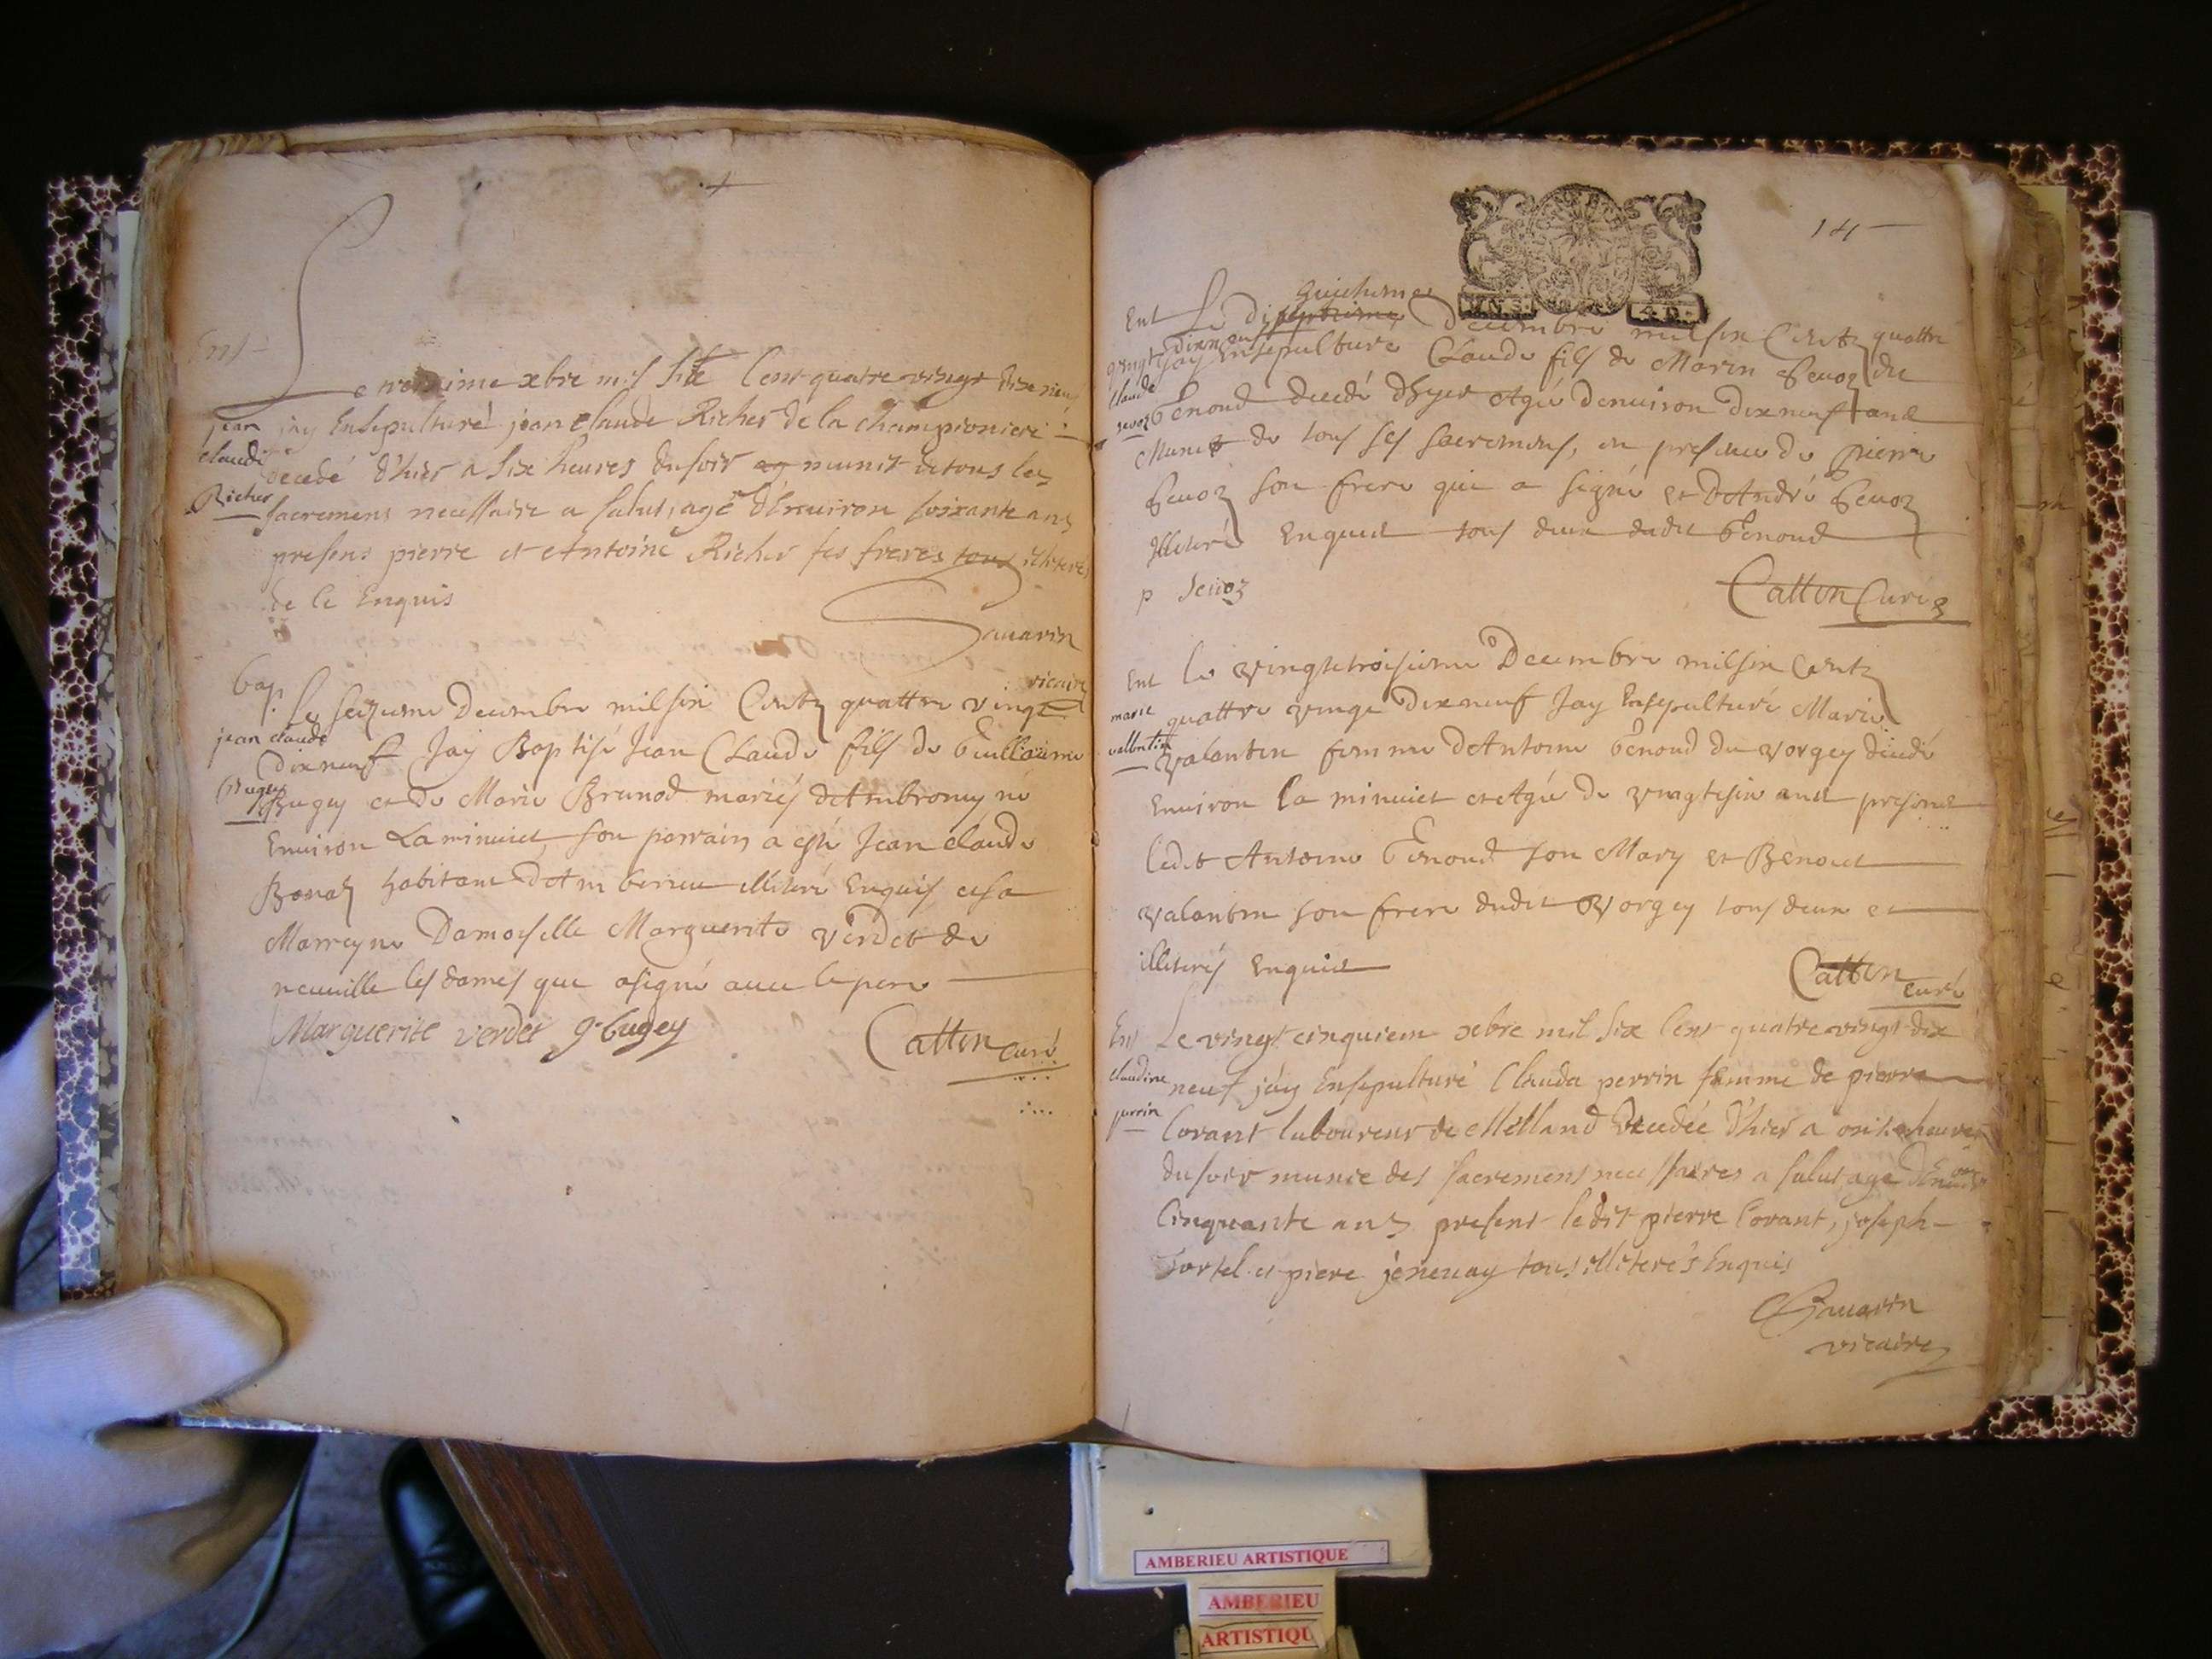 Ent
Le xbre mil six Cent quatre vingt dix neuf
jean
jay Ensepulturé jean claude Richer de la championiere
claude
decedé d'hier a six heures du soir munit de tous les
Richer
sacremens necessaire a salut, agé d'Environ soixante ans
presens pierre et Antoine Richer ses freres tous illiteres
de ce Enquis
Sauarin
vicaire
bap.
Le seizieme Decembre mil six Centz quattre vingt
jean claude
dix neuf Jay Baptisé Jean Claude fils de Guillaume
Bugey
Bugey et de Marie Brunod mariés d'Ambronay né
Environ La minuict son parrain a esté Jean claude
Bonaz habitant d'Amberieu illiteré Enquis et sa
Marreyne Damoiselle Marguerite Verdet de
neuuille les dames qui a signé auec le pere
Marguerite verdet g bugey
Catton curé
14
Ent Le di Decembre mil six Centz quattre
vingt dixneuf jay Ensepulturé Claude fils de Marin Genoz du
claude
Genoud decedé d'hyer et agé d'enuiron dixneuf ans
Munis de tous ses sacremens, en presence de Pierre
Genoz son frere qui a signé et d'André Genoz
Illiteré Enquis tous deux dudit Genoud
p Jenoz
Catton Curé
Ent Le vingt troisieme Decembre mil six Centz
marie
quattre vingt Dixneuf Jay Ensepulturé Marie
vallentin
Valantin femme d'Antoine Genoud du Vorgey decedé
Enuiron la minuict et agée de vingt six ans presens
ledit Antoine Genoud son Mary et Benoict
Valantin son frere dudit Vorgey tous deux
illiterés Enquis
Catton
curé
Ent Le vingt cinquiem xbre mil six Cent quatre vingt dix
claudine
neuf jay Ensepulturé Clauda perrin femme de pierre
perrin
Corant laboureur de decedée d'hier a onze heures
du soir munie des sacremens necessaires a salut age d'Enuiron
Cinquante ans present ledit pierre Corant, joseph
et piere jenenay tous illiterés Enquis
Sauarin
vicaire
AMBERIEU ARTISTIQUE
AMBERIEU
ARTISTIQU